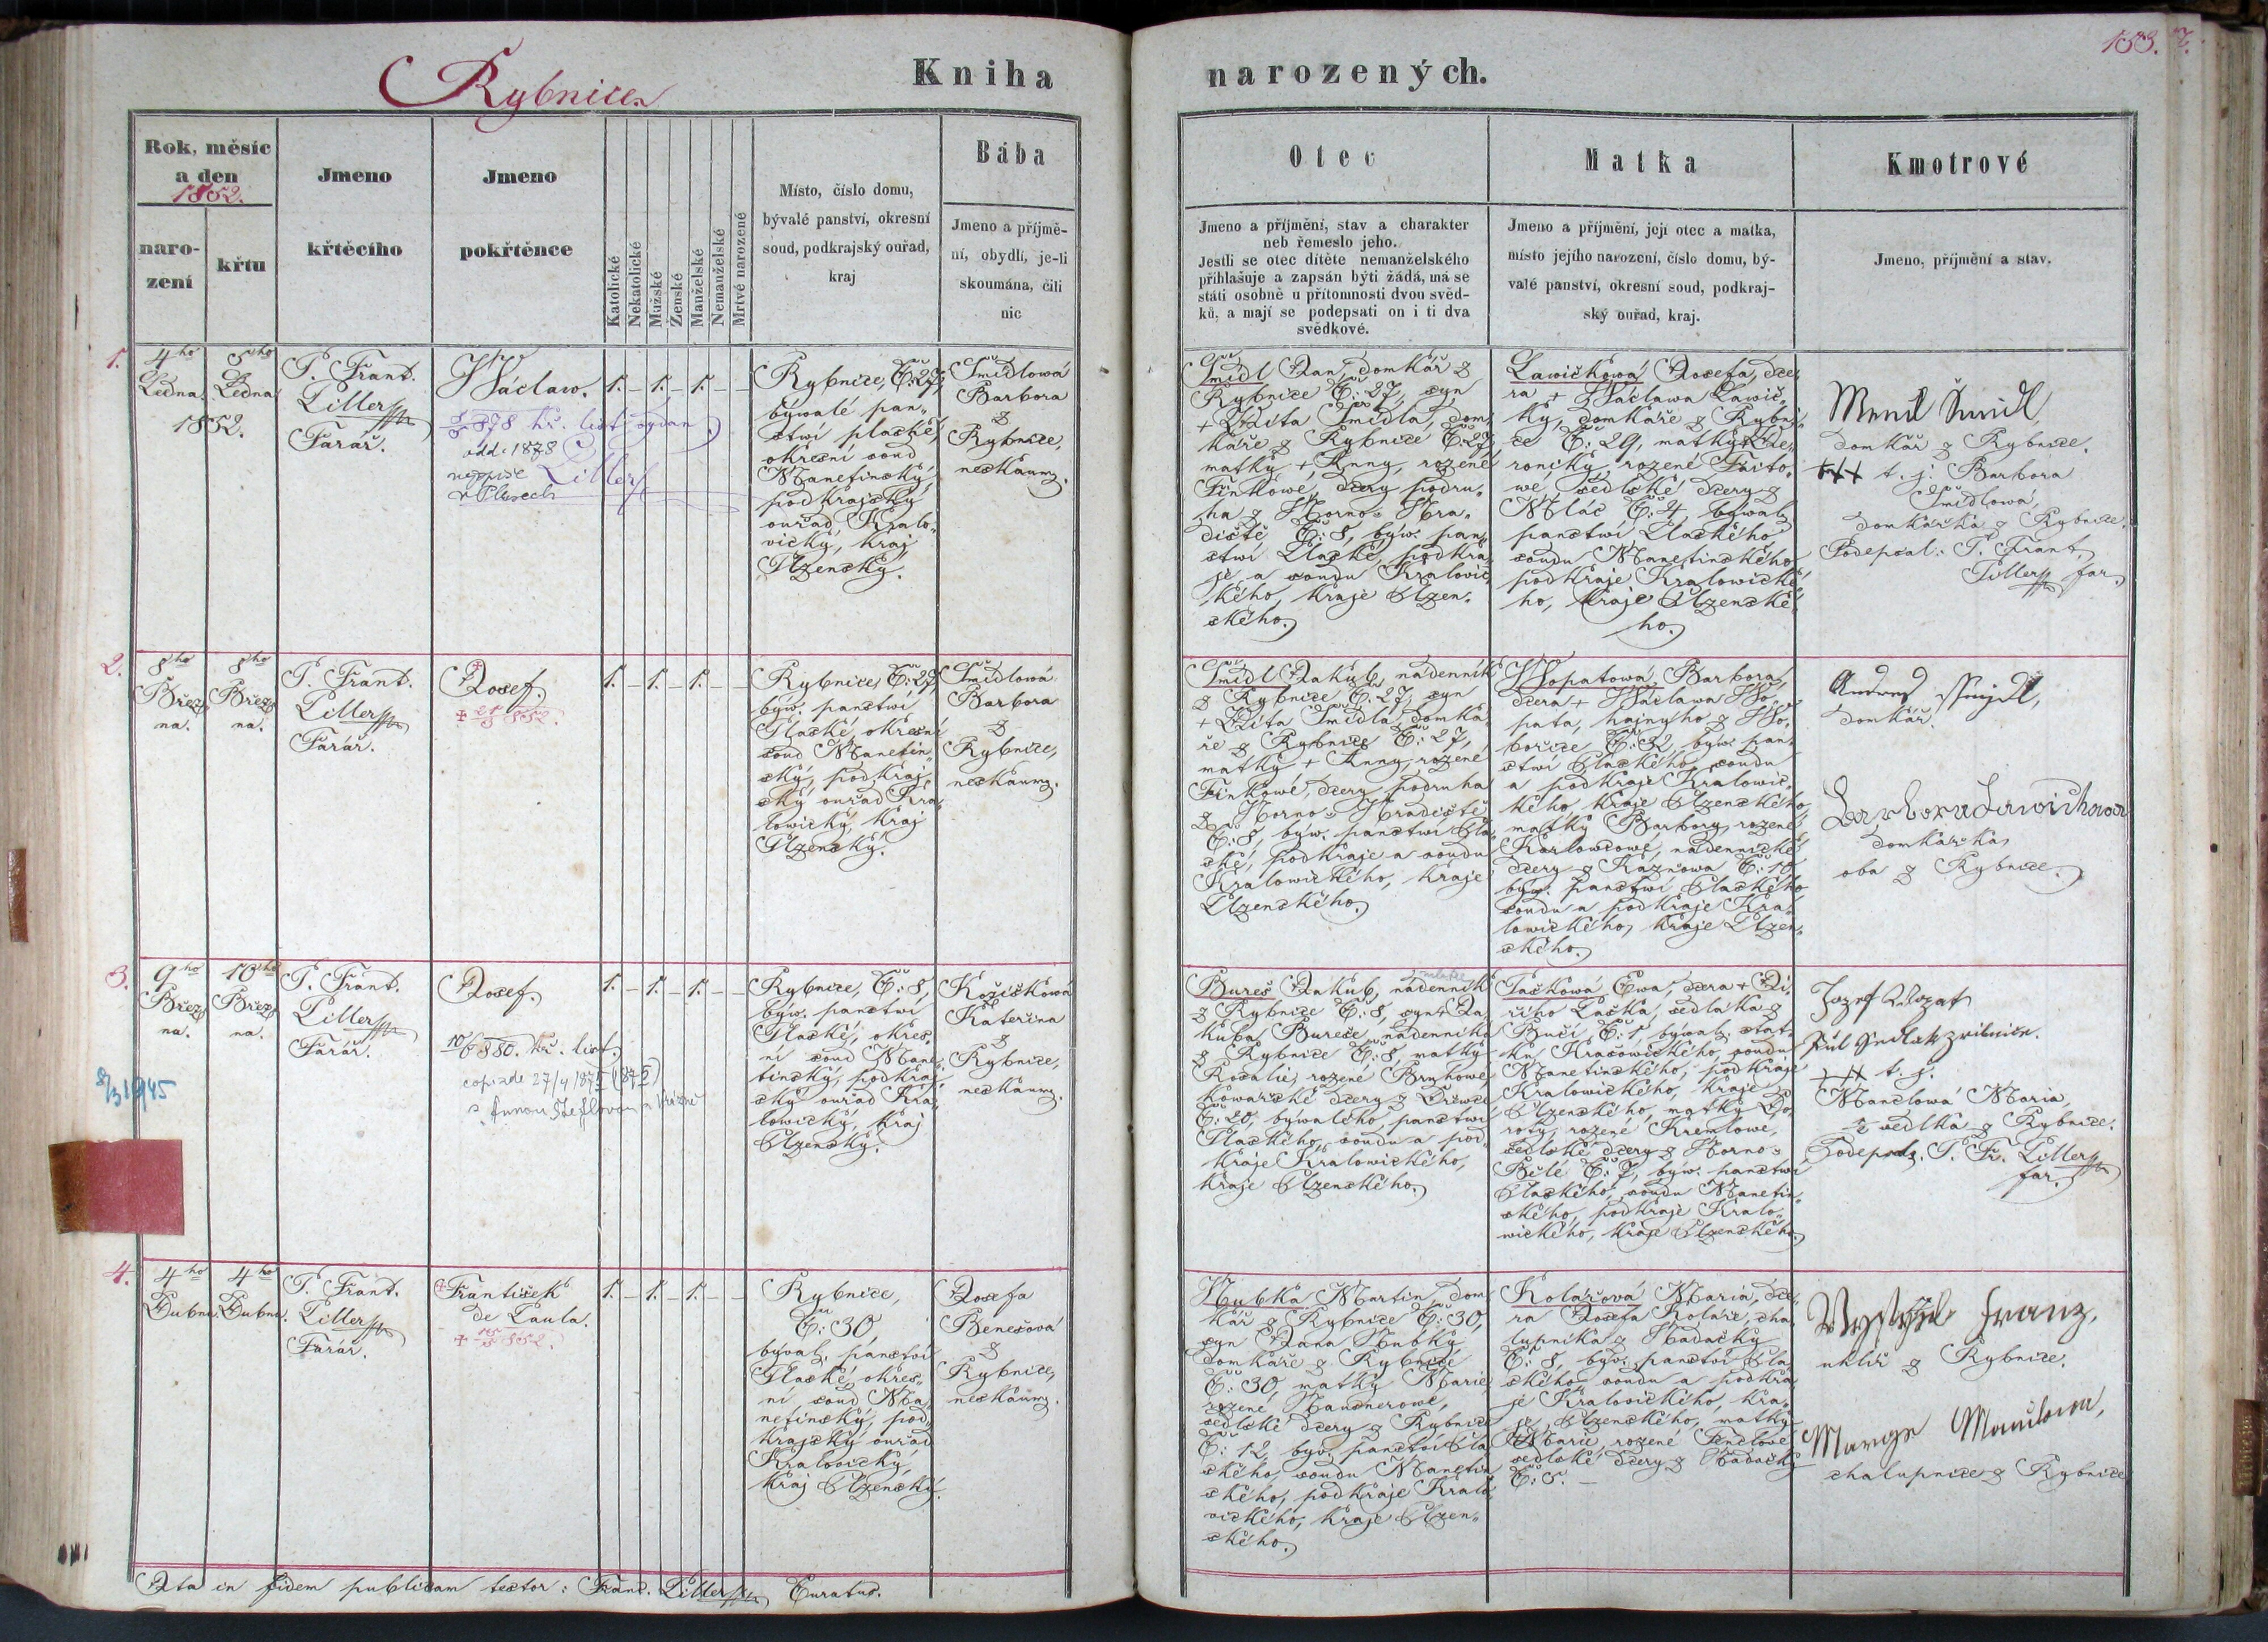 Rybnice
Kniha
narozených.
Rok, měsíc
a den
1852.
naro-
zení
křtu
Jmeno
křtěcího
Jmeno
pokřtěnce
Katolické
Nekatolické
Mužské
Ženské
Manželské
Nemanželské
Mrtvé narozené
Místo, číslo domu,
bývalé panství, okresní
soud, podkrajský ouřad,
kraj
Bába
Jmeno a příjmě-
ní, obydlí, je-li
skoumána, čili
nic
Otec
Jmeno a příjmění, stav a charakter
neb řemeslo jeho.
Jestli se otec dítěte nemanželského
přihlašuje a zapsán býti žádá, má se
státi osobně u přítomnosti dvou svěd-
ků, a mají se podepsati on i ti dva
svědkové.
Matka
Jmeno a příjmění, její otec a matka,
místo jejího narození, číslo domu, bý-
valé panství, okresní soud, podkraj-
ský ouřad, kraj.
Kmotrové
Jmeno, příjmění a stav.
1.
4ho
Ledna
1852.
5ho
Ledna
P. Frant.
Tiller
Farář.
Wáclaw.
odd. 1878
Tiller
1. _ 1. _ 1. _ _
Rybnice, Č: 27,
bývalé pan-
ství plaské,
okresní soud
Manetinský,
podkrajský
ouřad Kralo-
vický, kraj
Plzenský.
Šmidlowá
Barbora
z
Rybnice,
neskaum.
Šmidl Jan, domkář z
Rybnice Č: 27, syn
+ Wita Šmidla, dom-
káře z Rybnice Č: 27,
matky + Anny, rozené
Finkowé, dcery podru-
ha z Horno- Hra-
diště Č: 8, býw. pan-
stwí Plaské, podkra-
je a soudu Kralovic-
kého, kraje Plzen-
ského.
Lawičkowá Josefa, dce-
ra + Wáclawa Lawič-
ky, domkáře z Rybni-
ce Č: 29, matky + We-
roniky, rozené
sedlské dcery z
Mlac Č: 4, býwal.
panstwí Plaského
soudu Manetinského
podkraje Kralowické-
ho, kraje Plzenské-
ho.
Šmidl,
domkář z Rybnice.
+++ t. j. Barbora
Šmidlowá,
domkářka z Rybnice.
Podepsal: P. Frant.
Tiller far.
2.
8ho
Břez-
na.
8ho
Břez-
na.
P. Frant.
Tiller
Farář.
Josef.
1. _ 1. _ 1. _ _
Rybnice, Č: 27,
býw. panstwí
Plaské, okresní
soud Manetin-
ský, podkraj-
ský ouřad Kra-
lowický, kraj
Plzenský.
Šmidlowá
Barbora
z
Rybnice,
neskaum.
Šmidl Jakub, nádenník
z Rybnice Č: 27, syn
+ Wita Šmidla, domká-
ře z Rybnice Č: 27,
matky + Anny, rozené
Finkowé, dcery podruha
z Horno- Hradiště
Č: 8, býw. panstwí Pla-
ské, podkraje a soudu
Kralowického, kraje
Plzenského.
Wopatowá Barbora,
dcera + Wáclawa Wo-
pata, hajnyho z Wo-
bořice Č: 32, býw. pan-
stwí Plaského, soudu
a podkraje Kralowic-
kého, kraje Plzenského,
matky Barbory, rozené
nádennické
dcery z Kaznowa Č: 10
býw. panstwí Plaského
soudu a podkraje Kra-
lowického, kraje Plzen-
ského.
domkář.
Barbora Lawičkowa
domkářka,
oba z Rybnice.
3.
9ho
Břez-
na.
10ho
Břez-
na.
P. Frant.
Tiller
Farář.
Josef.
1. _ 1. _ 1. _ _
Rybnice, Č: 8,
býw. panstwí
Plaské, okres-
ní soud Mane-
tinský, podkraj-
ský ouřad Kra-
lowický, kraj
Plzenský.
Kožiškowá
Kateřina
z
Rybnice,
neskaum.
Bureš Jakub, nádenník
z Rybnice Č: 8, syn + Ja-
kuba Bureše, nádenníka
z Rybnice Č: 8, matky
Rosalie, rozené
kowářské dcery z
Č: 20, býwalého panstwí
Plaského, soudu a pod-
kraje Kralowického,
kraje Plzenského.
Taškowá Ewa, dcera + Ji-
řiho Tašká, sedláka z
Bučí Č: 1, býwal. stat-
ku Kračowického, soudu
Manetinského, podkraje
Kralowického, kraje
Plzenského, matky Do-
roty, rozené Kremlowe,
sedlské dcery z Horno-
Bělé Č: 7, býw. panstwí
Plaského, soudu Manetin-
ského, podkraje Kralo-
wického, kraje Plzenského.
Jozef
+++ t. j.
Manclowa Maria,
sedlka z Rybnice.
Podeps. P. Fr. Tiller
far.
4.
4ho
Dubna.
4ho
Dubna.
P. Frant.
Tiller
Farář.
František
de Paula.
1. _ 1. _ 1. _ _
Rybnice,
Č: 30,
býval. panství
Plaské, okres-
ní soud Ma-
netinský, pod-
krajský ouřad
Kralovický,
kraj Plzenský.
Josefa
Benešová
z
Rybnice,
neskaum.
Hubka Martin, dom-
kář z Rybnice Č: 30,
syn Jana Hubky,
domkáře z Rybnice
Č: 30, matky Marie
rozené Hausnerowé,
sedlské dcery z Rybnice
Č: 12, býw. panství Pla-
ského, soudu Manetin-
ského, podkraje Kralo-
vického, kraje Plzen-
ského.
Kolářová Maria, dce-
ra Josefa Koláře, cha-
lupníka z Hadačky
Č: 8, býv. panství Pla-
ského soudu a podkra-
je Kralovického, kra-
je Plzenského, matky
Marie, rozené
sedlské dcery z Hadačky
Č: 5. _
Franz,
z Rybnice.
chalupnice z Rybnice
Ita in fidem publicam testor: Franc. Tiller Curatus.